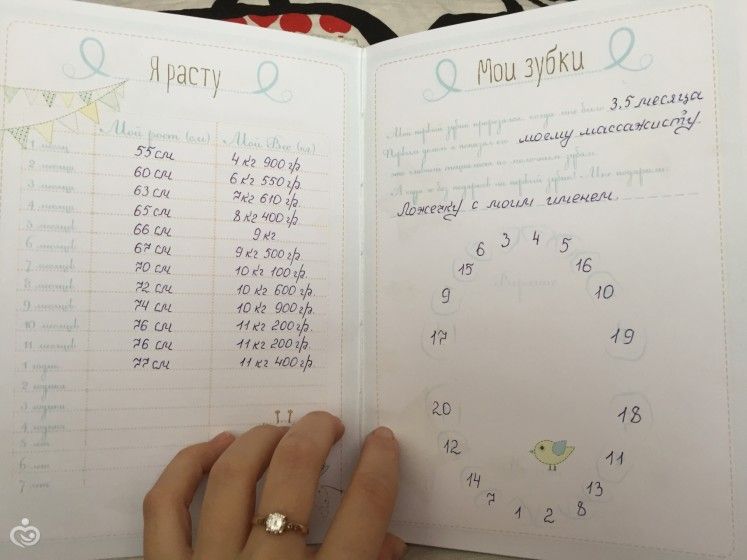 Я расту
Мой рост (см) Мой Вес (кг)
1 месяц 55 см 4 кг 900 гр.
2 месяца 60 см 6 кг 550 гр.
3 месяца 63 см 7 кг 610 гр.
4 месяца 65 см 8 кг 400 гр.
5 месяцев 66 см 9 кг
6 месяцев 67 см 9 кг 500 гр.
7 месяцев 70 см 10 кг 100 гр.
8 месяцев 72 см 10 кг 600 гр.
9 месяцев 74 см 10 кг 900 гр.
10 месяцев 76 см 11 кг 200 гр.
11 месяцев 76 см 11 кг 200 гр.
1 годик 77 см 11 кг 400 гр.
2 годика
3 годика
4 годика
5 лет
6 лет
7 лет
Мои зубки
Мой первый зубик прорезался, когда мне было 3,5 месяца
моему массажисту.
Ложечку с моим именем.
3 4
6 5
15 16
9 10
17 19
20 18
12 11
14 13
7 8
1 2